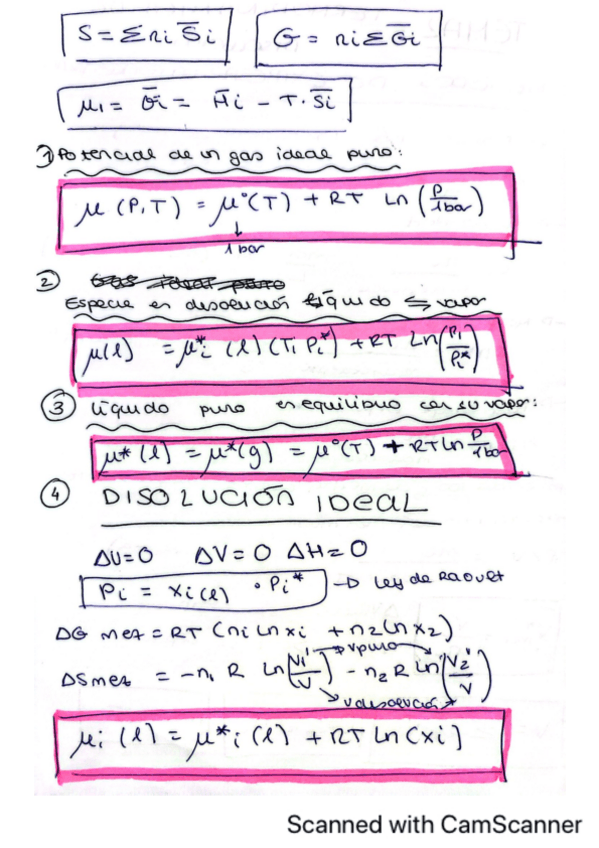 S = Σ ni S̄i
G = ni Σ Ḡi
μ1 = Ḡi = H̄i - T · S̄i
1) Potencial de un gas ideal puro:
μ (P, T) = μ°(T) + RT Ln (P/1bar)
↓
1 bar
2) Gas ideal puro
Especie en disolución líquido ⇆ vapor
μ(l) = μ*i (l) (T, Pi*) + RT Ln (Pi/Pi*)
3) líquido puro en equilibrio con su vapor:
μ* (l) = μ*(g) = μ°(T) + RT Ln P/1bar
4) DISOLUCIÓN IDEAL
ΔU=0 ΔV = 0 ΔH = 0
Pi = xi(l) · Pi* → Ley de Raoult
ΔG mez = RT (n1 Ln x1 + n2 Ln x2)
→ Vpuro
ΔS mez = -n1 R Ln (V1/V) - n2 R Ln (V2/V)
→ V disolución
μi (l) = μ*i (l) + RT Ln (xi)
Scanned with CamScanner